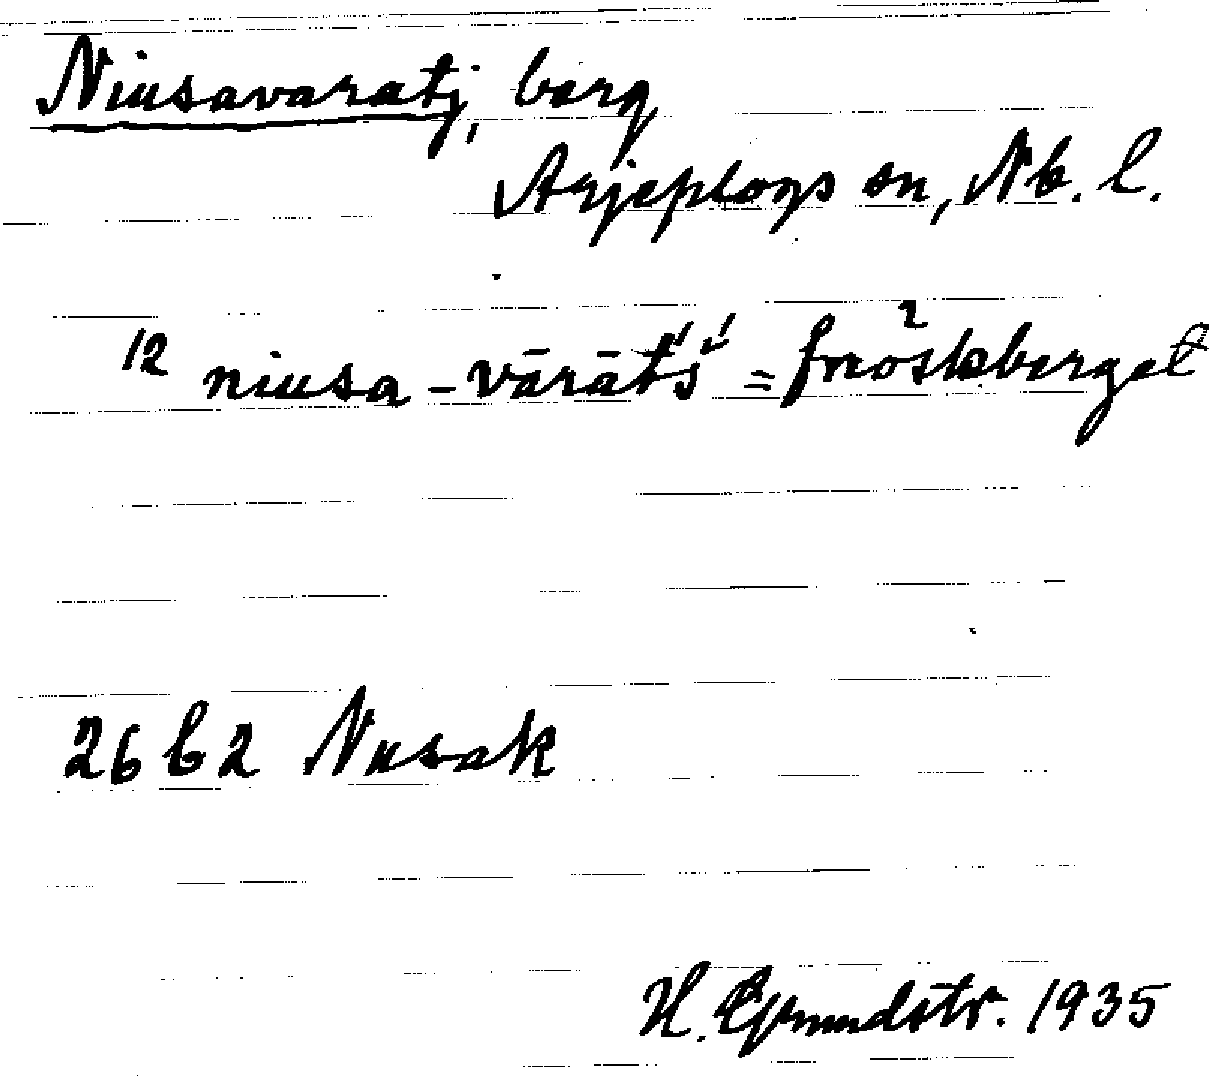 Niusavaratj, berg
Arjeplogs sn, Nb. l.
12 niusa-vārāt's' = fnöskberget
26 b 2 Nusak
H. Grundstr. 1935